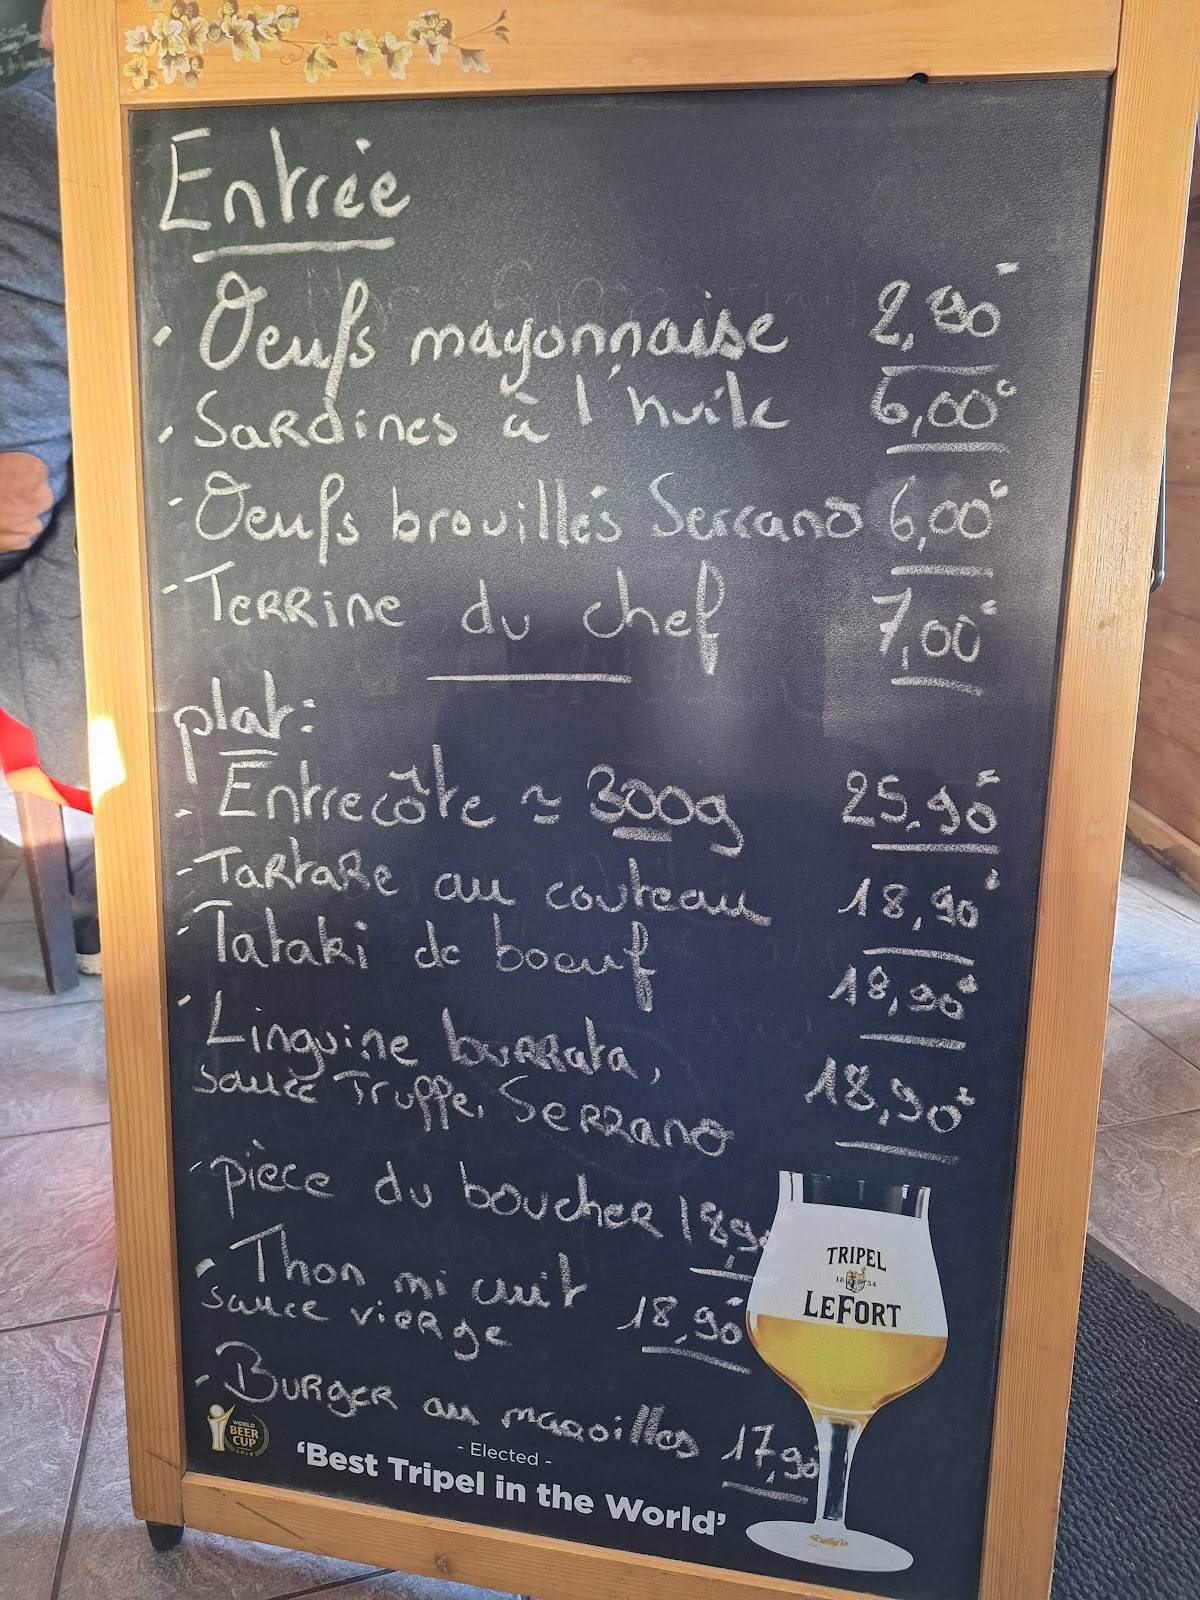 Entrée
- Oeufs mayonnaise 2,90
- Sardines à l'huile 6,00€
- Oeufs brouillés Serrano 6,00€
- Terrine du chef 7,00€
plat:
- Entrecôte ~ 300g 25,90€
- Tartare au couteau 18,90€
- Tataki de boeuf 18,90€
- Linguine burrata,
sauce Truffe, Serrano 18,90€
- pièce du boucher 18,90
- Thon mi cuit
sauce vierge 18,90€
- Burger au maroilles 17,90
TRIPEL
18 54
LEFORT
WORLD
BEER
CUP
GOLD
- Elected -
'Best Tripel in the World'